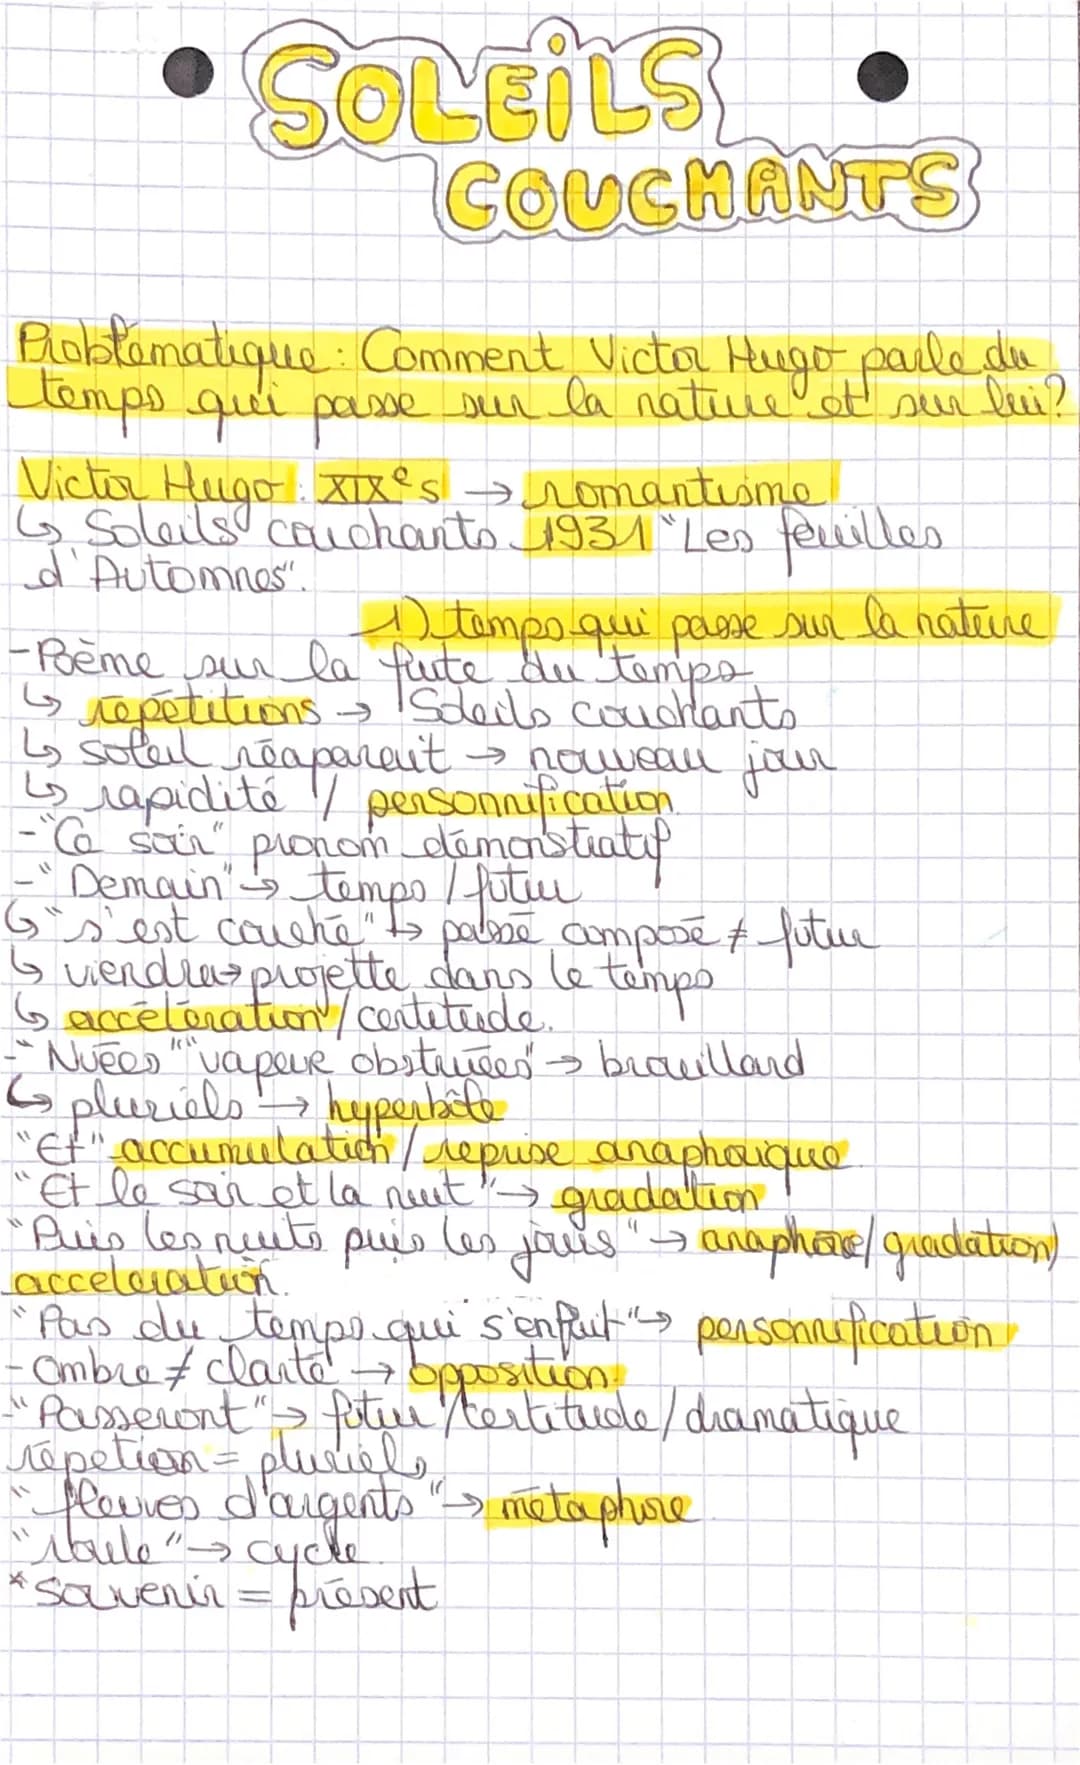 SOLEiLS
COUCHANTS
Problématique : Comment Victor Hugo parle du
temps qui passe sur la nature et sur lui ?
Victor Hugo : XIXe s → romantisme
↳ Soleils couchants 1931 "Les feuilles
d'Automnes".
1) temps qui passe sur la nature
- Poème sur la fuite du temps
↳ répétitions → Soleils couchants
↳ soleil réaparait → nouveau jour
↳ rapidité // personnification
- "Ce soir" pronom démonstratif
- "Demain" → temps / futur
↳ "s'est couché" ↳ passé composé ≠ futur
↳ viendra → projette dans le temps
↳ accélération / certitude.
- "Nuées" "vapeur obstruées" → brouillard
↳ pluriels → hyperbole
"Et" accumulation / reprise anaphorique
"Et le soir et la nuit" → gradation
"Puis les nuits puis les jours" → anaphore / gradation /
acceleration.
"Pas du temps qui s'enfuit" → personnification
- Ombre ≠ clarté → opposition.
- "Passeront" → futur / certitude / dramatique
répetion = pluriels
"fleuves d'argents" → métaphore
"roule" → cycle
* souvenir = présent